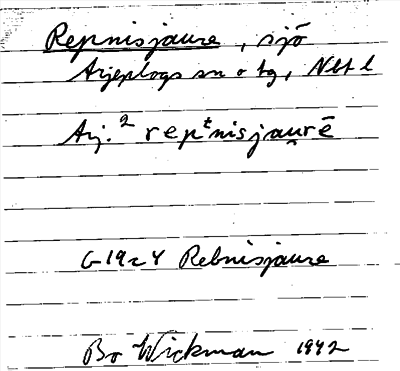 Repnisjaure, sjö
Arjeplogs sn o tg, Nbt l
Arj.² repᵗnisjau̯rē
G 19 Rebnisjaure
Bo Wickman 1942